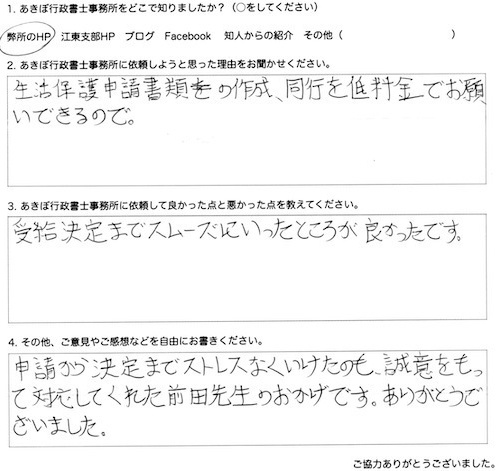 1. あきぼ行政書士事務所をどこで知りましたか？（○をしてください）
弊所のHP 江東支部HP ブログ Facebook 知人からの紹介 その他（ ）
2. あきぼ行政書士事務所に依頼しようと思った理由をお聞かせください。
生活保護申請書類の作成、同行を低料金でお願
いできるので。
3. あきぼ行政書士事務所に依頼して良かった点と悪かった点を教えてください。
受給決定までスムーズにいったところが良かったです。
4. その他、ご意見やご感想などを自由にお書きください。
申請から決定までストレスなくいけたのも、誠意をもっ
て対応してくれた前田先生のおかげです。ありがとうご
ざいました。
ご協力ありがとうございました。